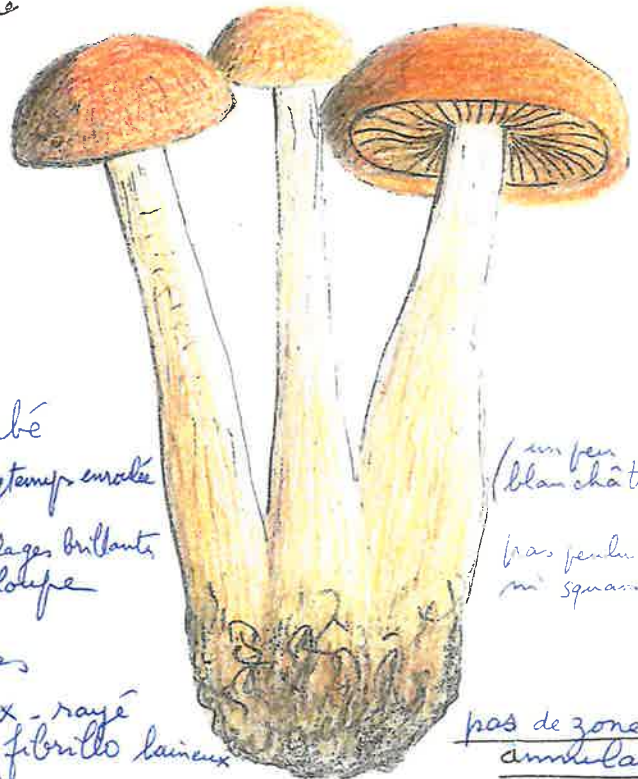 bé
gtemps enroulée
lages brillantes
loupe
es
x - rayé
fibrillo laineux
(un peu
blanchât
pas
ni squam
pas de zone
annula